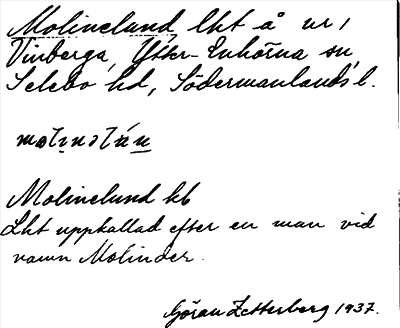 Molinelund lht å nr 1
Vinberga, Ytter-Enhörna sn
Selebo hd, Södermanlands l.
Molinelund hb
Lht uppkallad efter en man vid
namn Molinder.
Göran Zetterberg 1937.